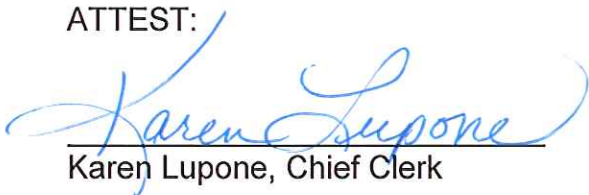 ATTEST:
Karen Lupone
Karen Lupone, Chief Clerk